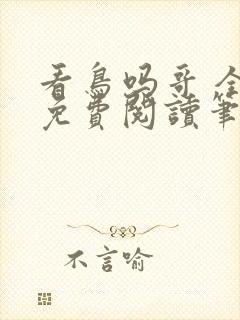 看鳥吗哥全
免費閱讀筆
不言喻